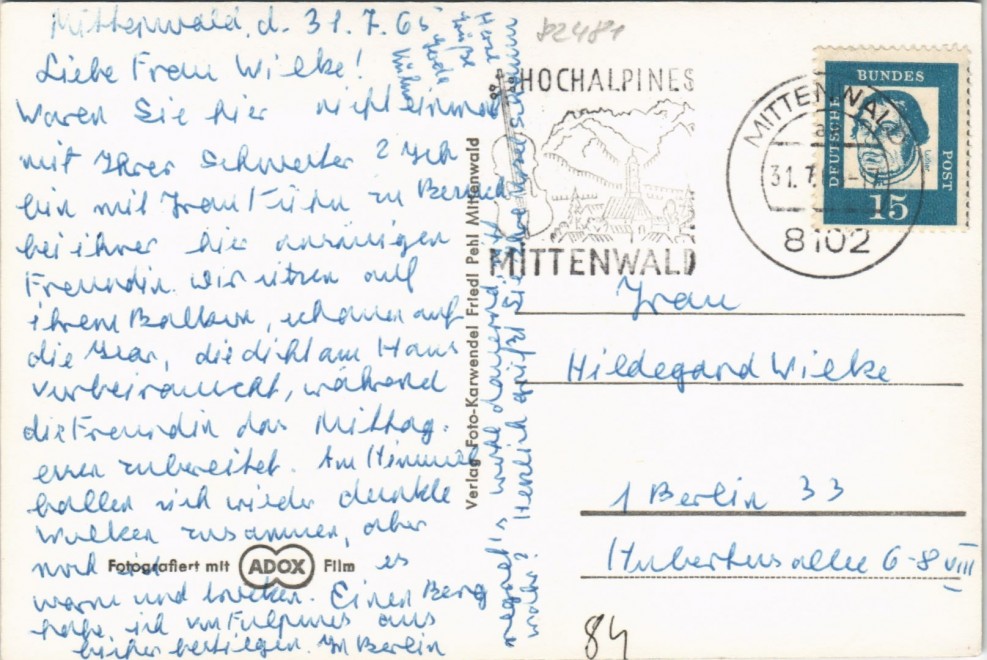 Mittenwald, d. 31.7.65
Liebe Frau Wilke!
Waren Sie hier nicht einmal
mit Ihrer Schwester? Ich
bin mit Frau zu Besuch
bei ihrer hier
Freundin. Wir sitzen auf
ihrem Balkon, schauen auf
die Isar, die dicht am Haus
vorbeirauscht, während
die Freundin das Mittag-
essen zubereitet. Am Himmel
ballen sich wieder dunkle
Wolken zusammen, aber
noch es
warm und trocken. Einen Berg
habe ich von aus
bisher bestiegen. In Berlin
regnet's wohl dauernd,
Herzlich grüßt Sie Ihre
Herzl.
Grüße
82481
HOCHALPINES
MITTENWALD
MITTENWALD
a
31.7.
8102
DEUTSCHE
BUNDES
POST
Luther
15
Verlag Foto-Karwendel Friedl Pehl Mittenwald
Fotografiert mit ADOX Film
Frau
Hildegard Wilke
1 Berlin 33
Hubertusallee 6-8 VIII
84